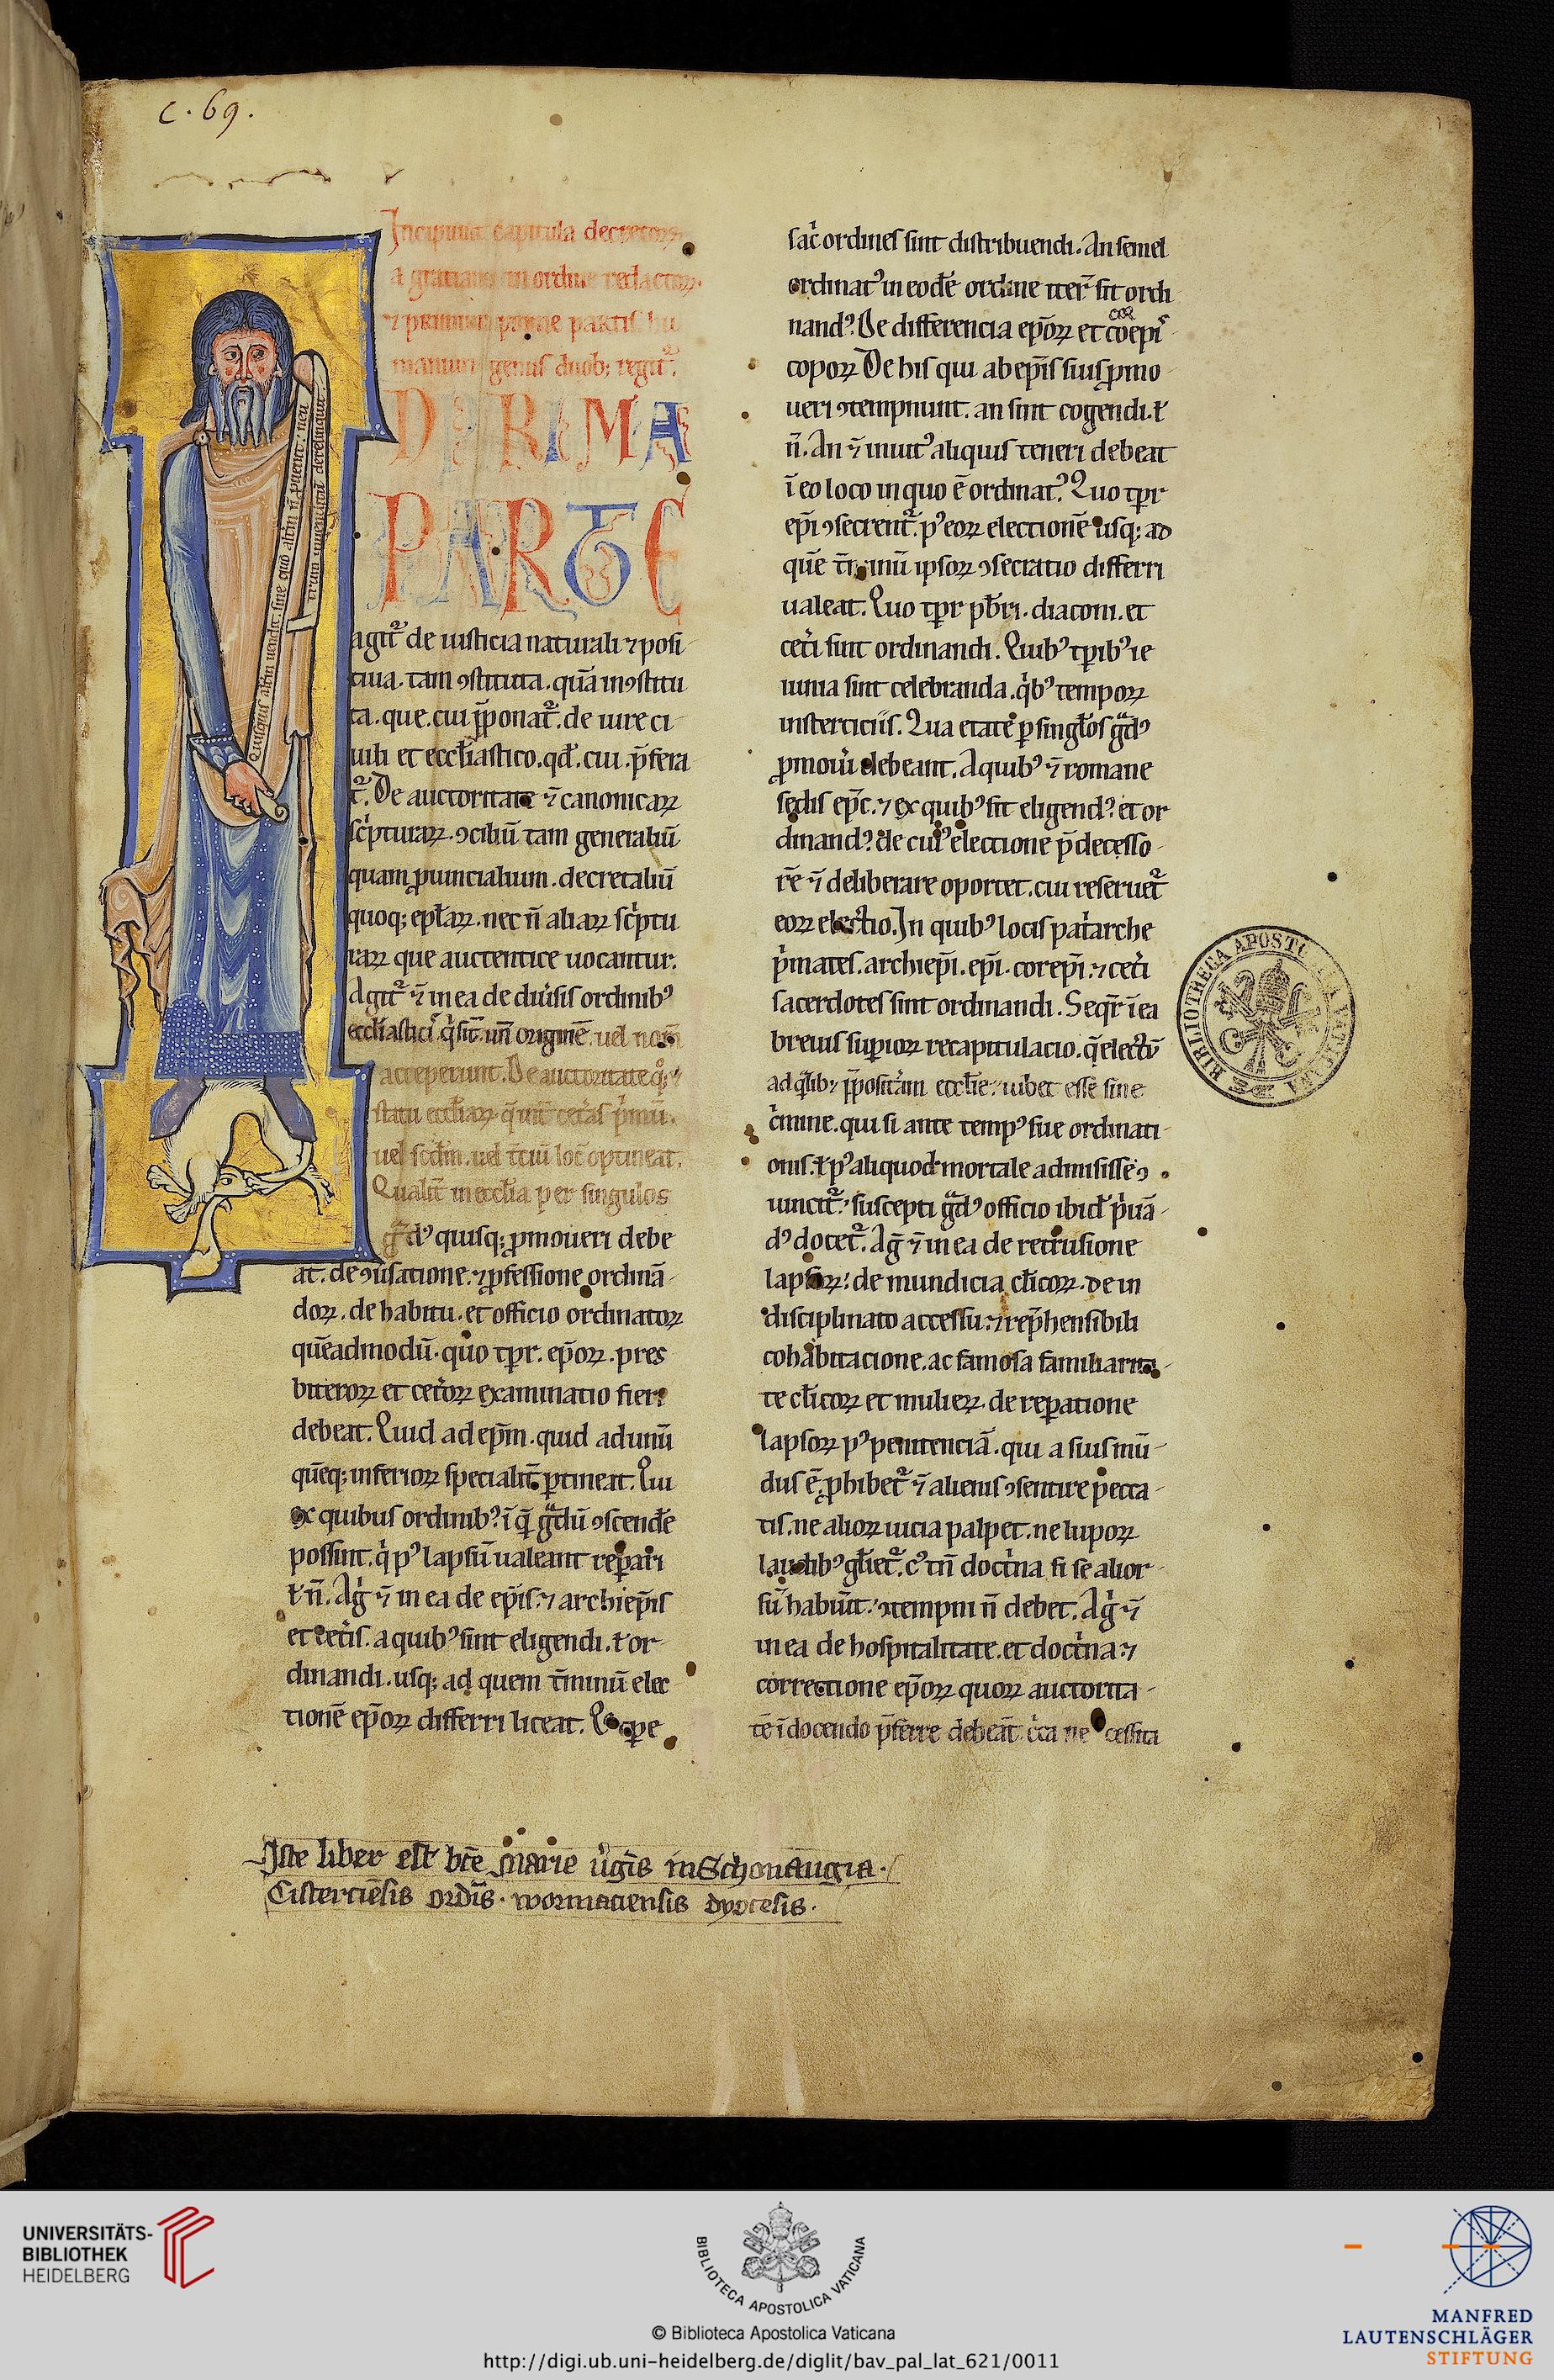 c. 69.
Incipiunt capitula decretoꝝ
a gratiano in ordine redactoꝝ.
⁊ primum prime partis. hu
manum genus duob; regit᷑.
PRIMA
PARTE
agit᷑ de iusticia naturali ⁊ posi
tiua. tam ꝯstituta. quā inꝯstitu
ta. que. cui p̄ponat᷑. de iure ci
uili et eccl̄iastico. qd̄. cui. p̄fera
t᷑. De auctoritate ⁊̄ canonicaꝝ
sc̓pturaꝝ. ꝯciliū tam generaliū
quam ꝓuincialium. decretaliū
quoq; epl̄aꝝ. nec n̄ aliaꝝ sc̓ptu
raꝝ que auctentice uocantur.
Agit᷑ ⁊̄ in ea de diu̓sis ordinibꝰ
eccl̄iastici. q̓ sit᷑ uñ originē. uel nom̄
acceperunt. De auctoritate q̊;
statu eccl̄iaꝝ q̄ int̄ cet̓as p̓mū.
uel scd̄m. uel t̄ciū loc̄ optineat.
Qualit̄ in eccl̄ia per singulos
gͣdꝰ quisq; ꝓmoueri debe
at. de ꝯuersatione. ⁊ ꝓfessione ordinā
doꝝ. de habitu. et officio ordinatoꝝ
quēadmodū. quo tp̄r. ep̄oꝝ. pres
biteroꝝ et cet̓oꝝ examinatio fieri
debeat. Quid ad ep̄m. quid ad unū
quēq; inferioꝝ specialit̄ ꝑtineat. Qui
ex quibus ordinibꝰ. ī q̄ gͣdū ꝯscend̄e
possint. q̓ pꝰ lapsū ualeant reꝑari
ł n̄. Ag̓ ⁊̄ in ea de ep̄is. ⁊ archiep̄is
et cet̓is. a quibꝰ sint eligendi. ł or
dinandi. usq; ad quem t̄minū elec
tionē ep̄oꝝ differri liceat. Quo tꝑe
sac̓ ordines sint distribuendi. An semel
ordinatꝰ in eod̄e ordine iter̄ sit ordi
nandꝰ. De differencia ep̄oꝝ et coepi
copoꝝ De his qui ab ep̄is suis ꝓmo
ueri ꝯtempnunt. an sint cogendi. ł
n̄. An ⁊̄ inuitꝰ aliquis teneri debeat
ī eo loco in quo ē ordinatꝰ. Quo tp̄r
ep̄i ꝯsecrent᷑. pꝰ eoꝝ electionē usq; ad
quē t̄minū ipsoꝝ ꝯsecratio differri
ualeat. Quo tp̄r pb̄ri. diaconi. et
cet̓i sint ordinandi. Quibꝰ tꝑibꝰ ie
iunia sint celebranda. q̓bꝰ tempoꝝ
insterciciis. Qua etate ꝑ singl̄os gͣdꝰ
ꝓmou̓i debeant. A quibꝰ ⁊̄ romane
sedis ep̄c. ⁊ ex quibꝰ sit eligendꝰ. et or
dinandꝰ. de cuiꝰ electione p̄decesso
rē ⁊̄ deliberare oportet. cui reseruet᷑
eoꝝ electio. In quibꝰ locis pat̓arche
p̓mates. archiep̄i. ep̄i. corep̄i. ⁊ cet̓i
sacerdotes sint ordinandi. Seqr̄ ī ea
breuis suꝑioꝝ recapitulacio. q̄ electū
ad q̓lib; p̄posit̓am eccl̄ie. iubet esse sine
c̓mine. qui si ante tempꝰ sue ordinati
onis. ł pꝰ aliquod mortale admisisse ꝯ
uincit᷑. suscepti gͣdꝰ officio ibid̄ p̓uā
dꝰ docet᷑. Ag̓ ⁊̄ in ea de retrusione
lapsoꝝ. de mundicia cl̄icoꝝ. de in
disciplinato accessu. ⁊ rep̄hensibili
cohabitacione. ac famosa familiarita
te cl̄icoꝝ et mulieꝝ. de reꝑatione
lapsoꝝ pꝰ penitenciā. qui a suis mū
dus ē. ꝓhibet᷑ ⁊̄ alienis ꝯsentire pecca
tis. ne alioꝝ uicia palpet. ne lupoꝝ
laudibꝰ gl̄iet᷑. cꝰ tn̄ doct̓na si se alior
sū habu̓it. ꝯtempni n̄ debet. Ag̓ ⁊̄
in ea de hospitalitate. et doct̓na. ⁊
correctione ep̄oꝝ quoꝝ auctorita
tē ī docendo p̄ferre debeāt. c̓ca necessita
Iste liber est btē Marie ṽgis in Schonaugia.
Cisterciēsis ordīs. wormaciensis dyocesis.
BIBLIOTHECA APOSTOLICA VATICANA
UNIVERSITÄTS-
BIBLIOTHEK
HEIDELBERG
BIBLIOTECA APOSTOLICA VATICANA
© Biblioteca Apostolica Vaticana
http://digi.ub.uni-heidelberg.de/diglit/bav_pal_lat_621/0011
MANFRED
LAUTENSCHLÄGER
STIFTUNG